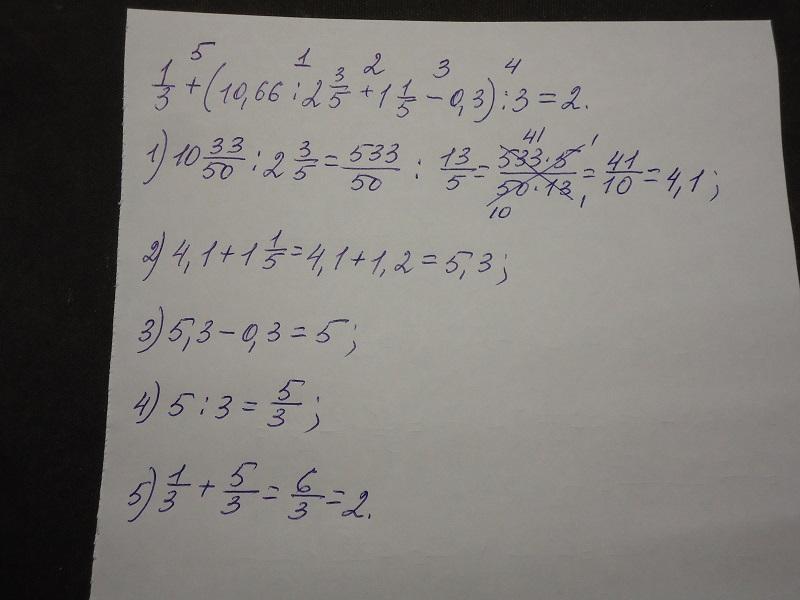 5 1 2 3 4
1/3 + (10,66 : 2 3/5 + 1 1/5 - 0,3) : 3 = 2.
1) 10 33/50 : 2 3/5 = 533/50 : 13/5 = 533 · 5/50 · 13 41 1 10 1 = 41/10 = 4,1;
2) 4,1 + 1 1/5 = 4,1 + 1,2 = 5,3;
3) 5,3 - 0,3 = 5;
4) 5 : 3 = 5/3;
5) 1/3 + 5/3 = 6/3 = 2.